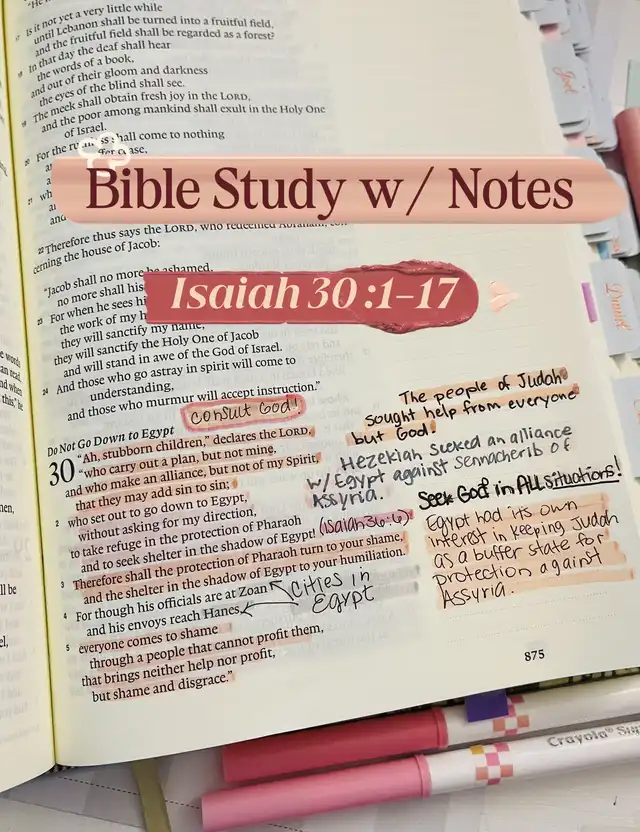 Is it not yet a very little while
until Lebanon shall be turned into a fruitful field,
and the fruitful field shall be regarded as a forest?
In that day the deaf shall hear
the words of a book,
and out of their gloom and darkness
the eyes of the blind shall see.
The meek shall obtain fresh joy in the LORD,
and the poor among mankind shall exult in the Holy One
of Israel.
For the shall come to nothing
Bible Study w/ Notes
22 Therefore thus says the LORD, who redeemed Abraham,
cerning the house of Jacob:
"Jacob shall no more be ashamed,
no more shall his
For when he sees hi
the work of my h
Isaiah 30:1-17
they will sanctify my name;
they will sanctify the Holy One of Jacob
and will stand in awe of the God of Israel.
24 And those who go astray in spirit will come to
understanding,
and those who murmur will accept instruction."
consult God!
Do Not Go Down to Egypt
30 "Ah, stubborn children," declares the LORD,
"who carry out a plan, but not mine,
and who make an alliance, but not of my Spirit,
that they may add sin to sin;
2 who set out to go down to Egypt,
without asking for my direction,
to take refuge in the protection of Pharaoh
and to seek shelter in the shadow of Egypt! (isaiah 36:6)
3 Therefore shall the protection of Pharaoh turn to your shame,
and the shelter in the shadow of Egypt to your humiliation.
4 For though his officials are at Zoan
and his envoys reach Hanes,
cities in
Egypt
5 everyone comes to shame
through a people that cannot profit them,
that brings neither help nor profit,
but shame and disgrace."
The people of Judah
sought help from everyone
but God.
Hezekiah seeked an alliance
w/ Egypt against Sennacherib of
Assyria.
Seek God in ALL situations!
Egypt had its own
interest in keeping Judah
as a buffer state for
protection against
Assyria.
875
Joel
Daniel
Crayola® Su